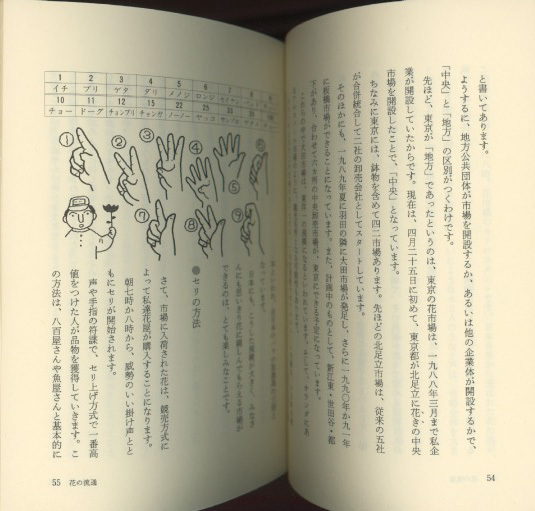 と書いてあります。
ようするに、地方公共団体が市場を開設するか、あるいは他の企業体が開設するかで、
「中央」と「地方」の区別がつくわけです。
先ほど、東京が「地方」であったというのは、東京の花市場は、一九八八年三月まで私企
業が開設していたからです。現在は、四月二十五日に初めて、東京都が北足立に花きの中央
市場を開設したことで、「中央」となっています。
ちなみに東京には、鉢物を含めて四二市場あります。先ほどの北足立市場は、従来の五社
が合併統合して二社の卸売会社としてスタートしています。
そのほかにも、一九八九年夏に羽田の隣に大田市場が発足し、さらに一九九〇年か九一年
に板橋市場ができることになっています。また、計画中のものとして、新江東・世田谷・都
下があり、合わせて六カ所の中央卸売市場が、東京にできる予定になっています。
できるのは、とても楽しみなことです。
●セリの方法
さて、市場に入荷された花は、競売方式に
よって私達花屋が購入することになります。
朝七時か八時から、威勢のいい掛け声とと
もにセリが開始されます。
声や手指の符諜で、セリ上げ方式で一番高
値をつけた人が品物を獲得していきます。こ
の方法は、八百屋さんや魚屋さんと基本的に
1 2 3 4 5 6 7
イチ ブリ ゲタ ダリ メノジ ロンジ
10 11 12 15 22 25
チョー ドーグ チョンブリ チョンガ ノーノー
① ② ③ ④ ⑤ ⑥ ⑦ ⑧ ⑨
54
55 花の流通